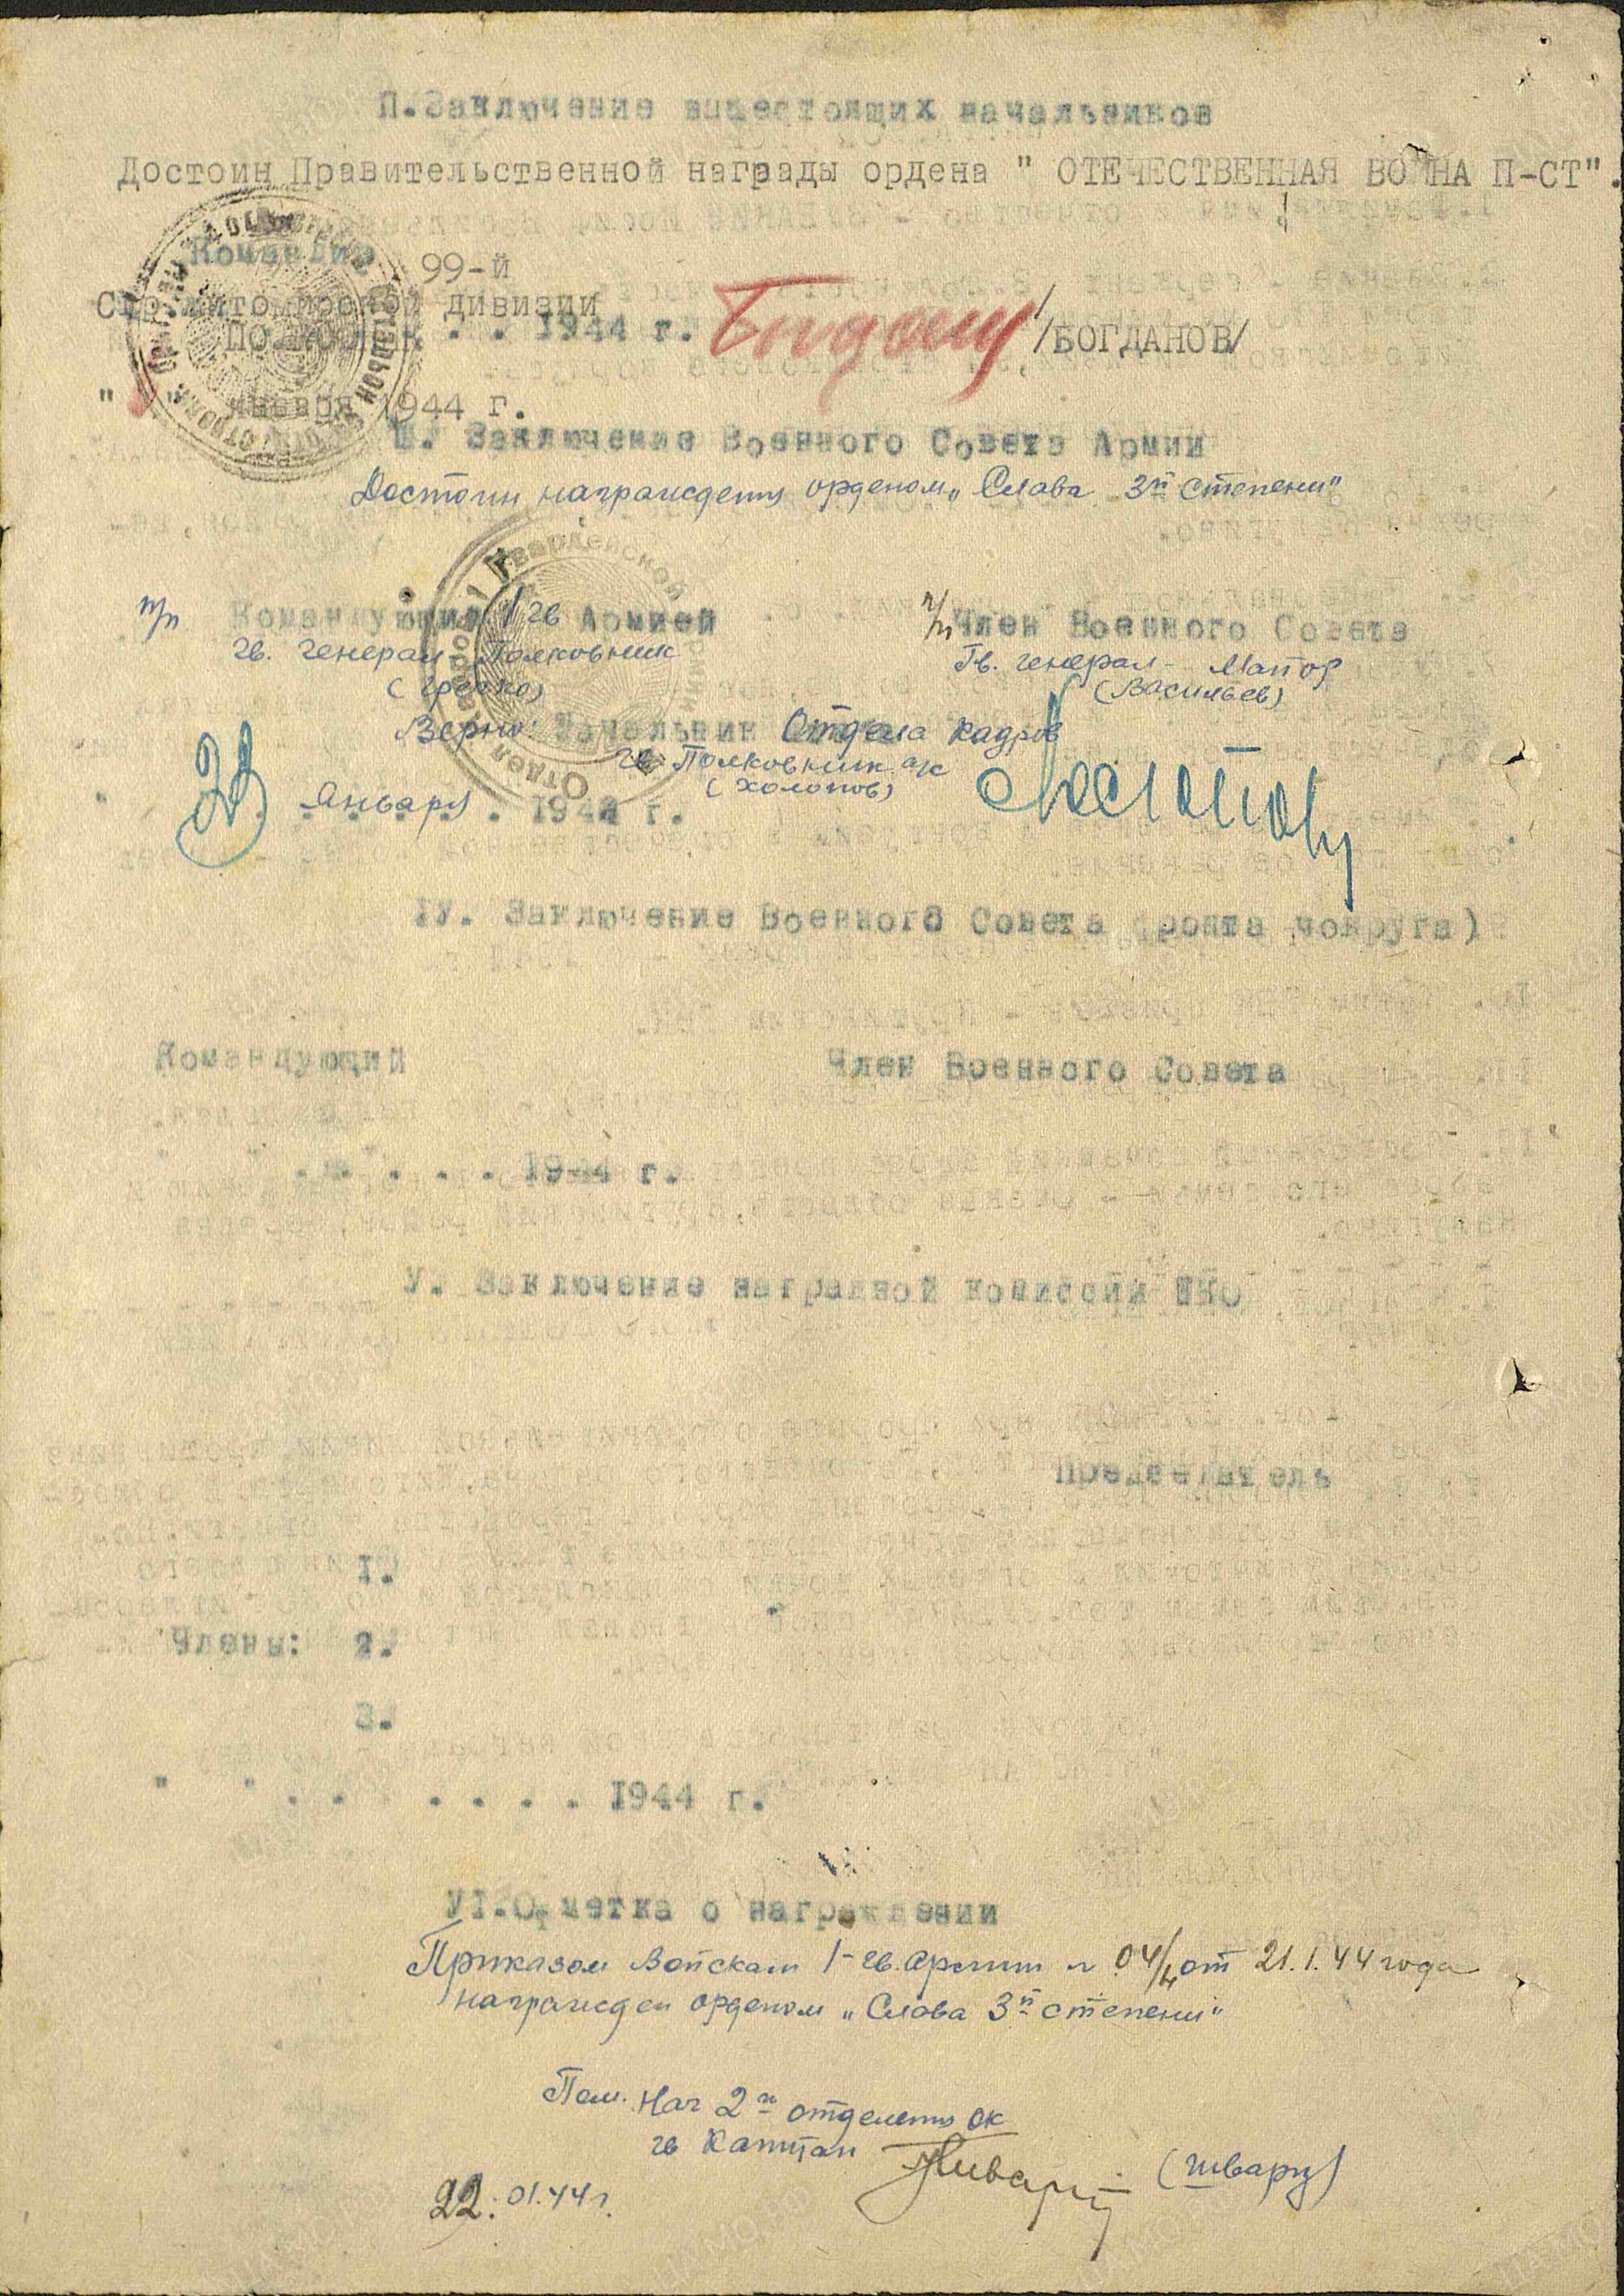 П. Заключение вышестоящих начальников
Достоин Правительственной награды ордена " ОТЕЧЕСТВЕННАЯ ВОЙНА П-СТ".
Командир 99-й
Стр. Житомирской дивизии
Полковник . . 1944 г. /БОГДАНОВ/
" " января 1944 г.
Ш. Заключение Военного Совета Армии
Достоин награждения орденом „Слава 3й степени"
п/п Командующий 1 гв Армией
п/п Член Военного Совета
гв. генерал-Полковник
Гв. генерал-Майор
(Гречко)
(Васильев)
Верно: Начальник Отдела кадров
гв. Полковник а/с
(Холопов)
января . 1944 г.
IУ. Заключение Военного Совета фронта (округа)
Командующий
Член Военного Совета
" " . . . . . 1944 г.
У. Заключение наградной комиссии НКО
Председатель
1.
Члены: 2.
3.
" " . . . . . . 1944 г.
УI. Отметка о награждении
Приказом Войскам 1-гв. Армии № 04/н от 21.1.44 года
награжден орденом „Слава 3й степени"
Пом. Нач 2го отделения ОК
гв Капитан
(Шварц)
22. 01.44 г.